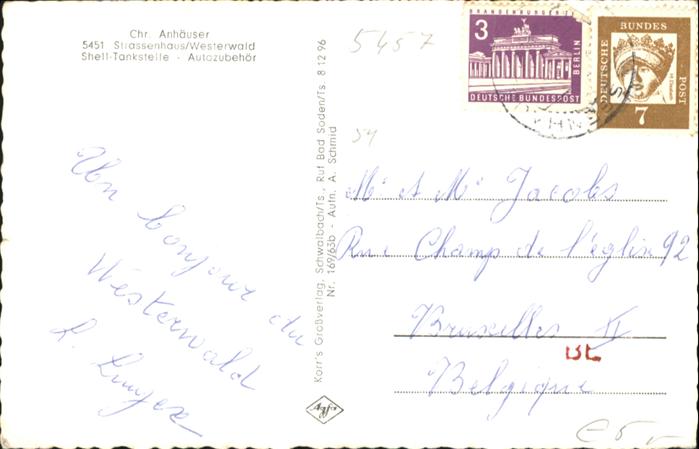 Chr. Anhäuser
5451 Strassenhaus/Westerwald
Shell-Tankstelle - Autozubehör
5457
54
Un bonjour du
Westerwald
L.
Korr's Großverlag, Schwalbach/Ts., Ruf Bad Soden/Ts. 8 12 96
Nr. 169/63b - Aufn. A. Schmid
Agfa
3
BRANDENBURGER
BERLIN
DEUTSCHE BUNDESPOST
DEUTSCHE
BUNDES
POST
7
Mr et Me Jacobs
Rue Champ de l'églin 92
Bruxelles II
BL
Belgique